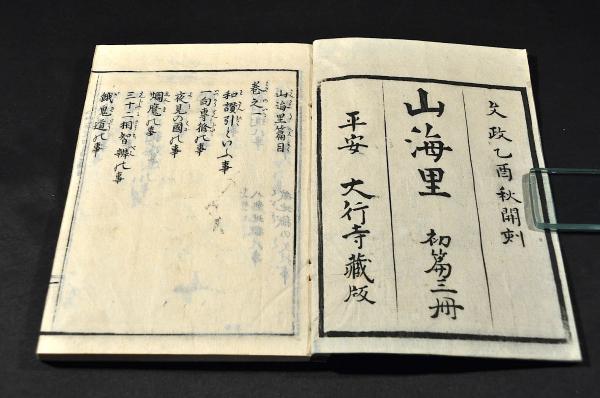 文政乙酉秋開刻
山海里 初篇三冊
平安 大行寺藏版
山海里篇目
巻之一
和讃引といふ事
一向専修の事
夜見の國の事
焔魔の事
三十二相智辨の事
餓鬼道の事